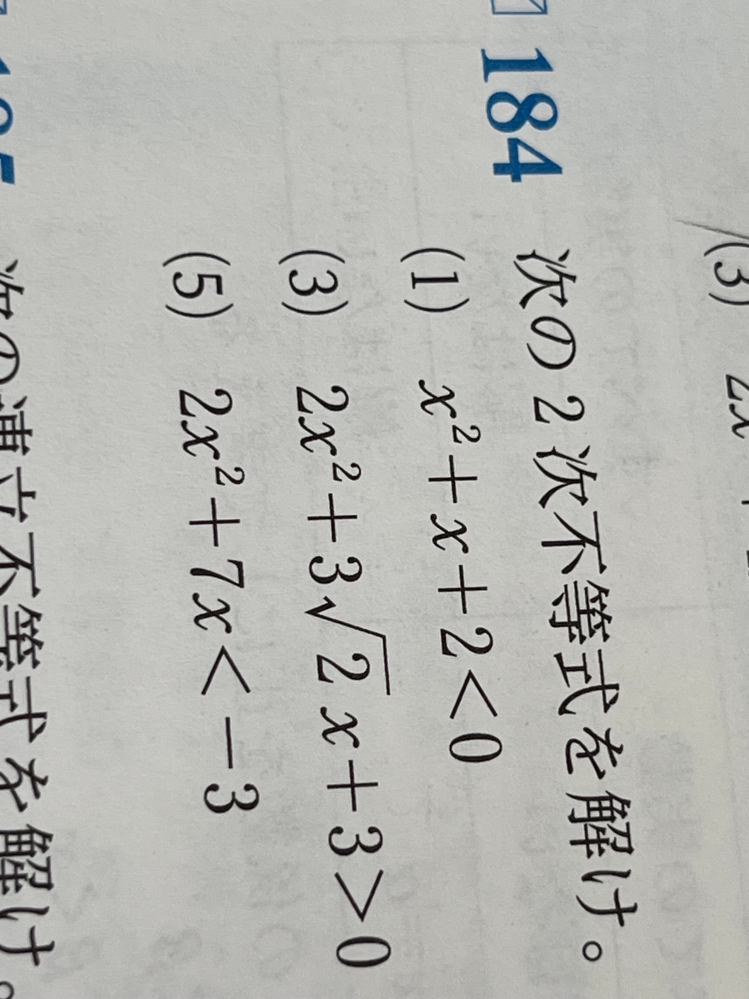 (3) 2x
184 次の2次不等式を解け。
(1) x²+x+2<0
(3) 2x²+3√2x+3>0
(5) 2x²+7x<-3
次の連立不等式を解け。